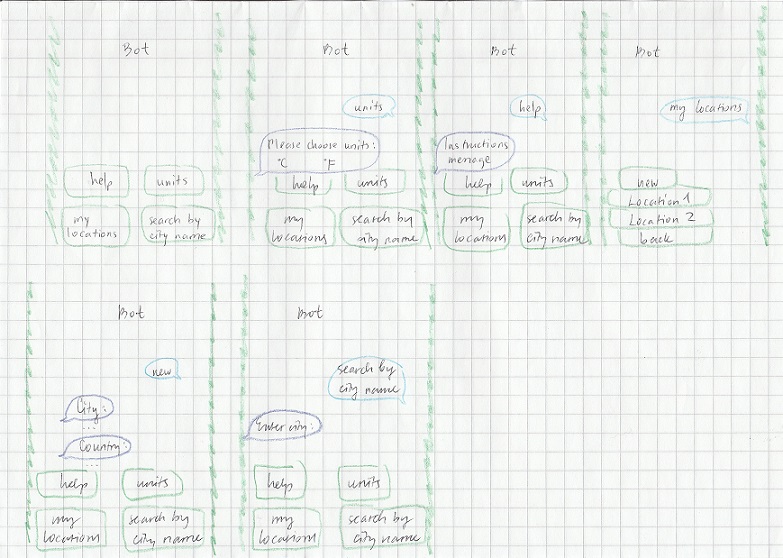 Bot
help
units
my
locations
search by
city name
Bot
units
Please choose units:
°C °F
help
units
my
locations
search by
city name
Bot
help
Instructions
message
help
units
my
locations
search by
city name
Bot
my locations
new
Location 1
Location 2
back
Bot
new
City:
...
Country:
...
help
units
my
locations
search by
city name
Bot
search by
city name
Enter city:
help
units
my
locations
search by
city name